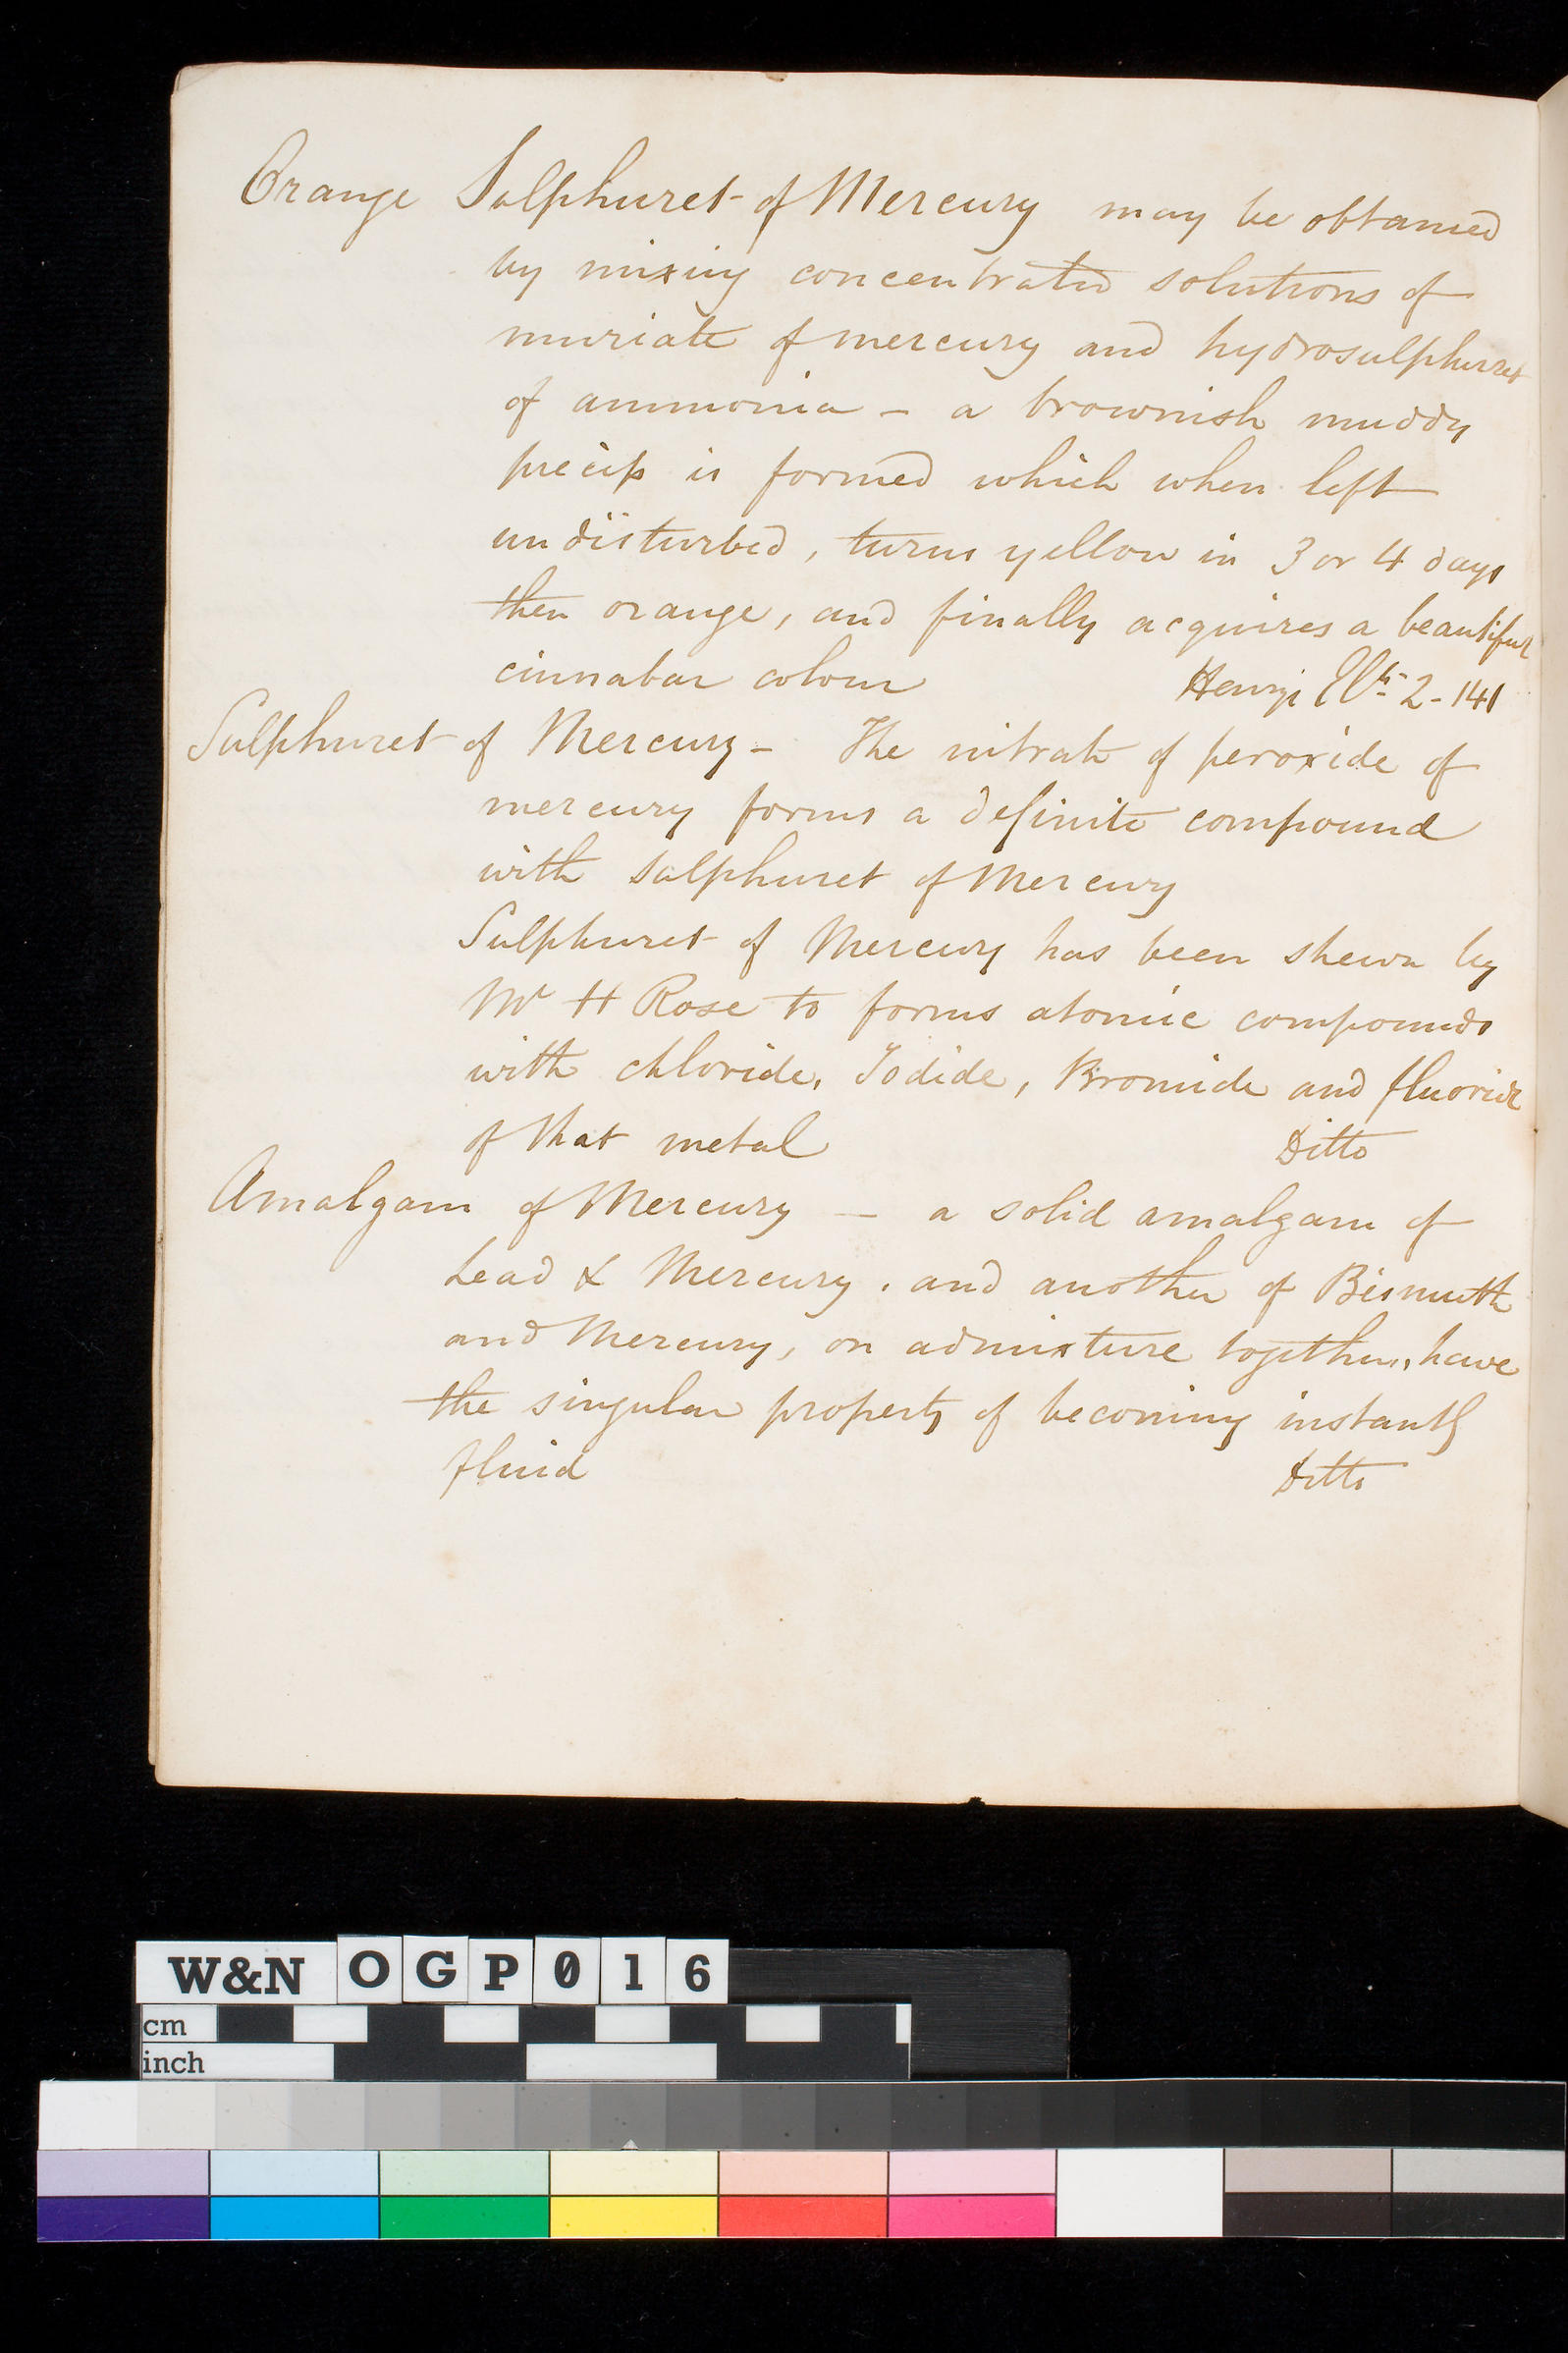 Orange Sulphuret of Mercury may be obtained
by mixing concentrated solutions of
muriate of mercury and hydrosulphuret
of ammonia - a brownish muddy
precip is formed which when left
undisturbed, turns yellow in 3 or 4 days
then orange, and finally acquires a beautiful
cinnabar colour Henry's 2-141
Sulphuret of Mercury - The nitrate of peroxide of
mercury forms a definite compound
with sulphuret of Mercury
Sulphuret of Mercury has been shewn by
Mr H Rose to forms atomic compounds
with chloride, Iodide, Bromide and fluoride
of that metal Ditto
Amalgam of Mercury - a solid amalgam of
Lead & Mercury, and another of Bismuth
and Mercury, on admixture together, have
the singular property of becoming instantly
fluid Ditto
W&N OGP016
cm
inch